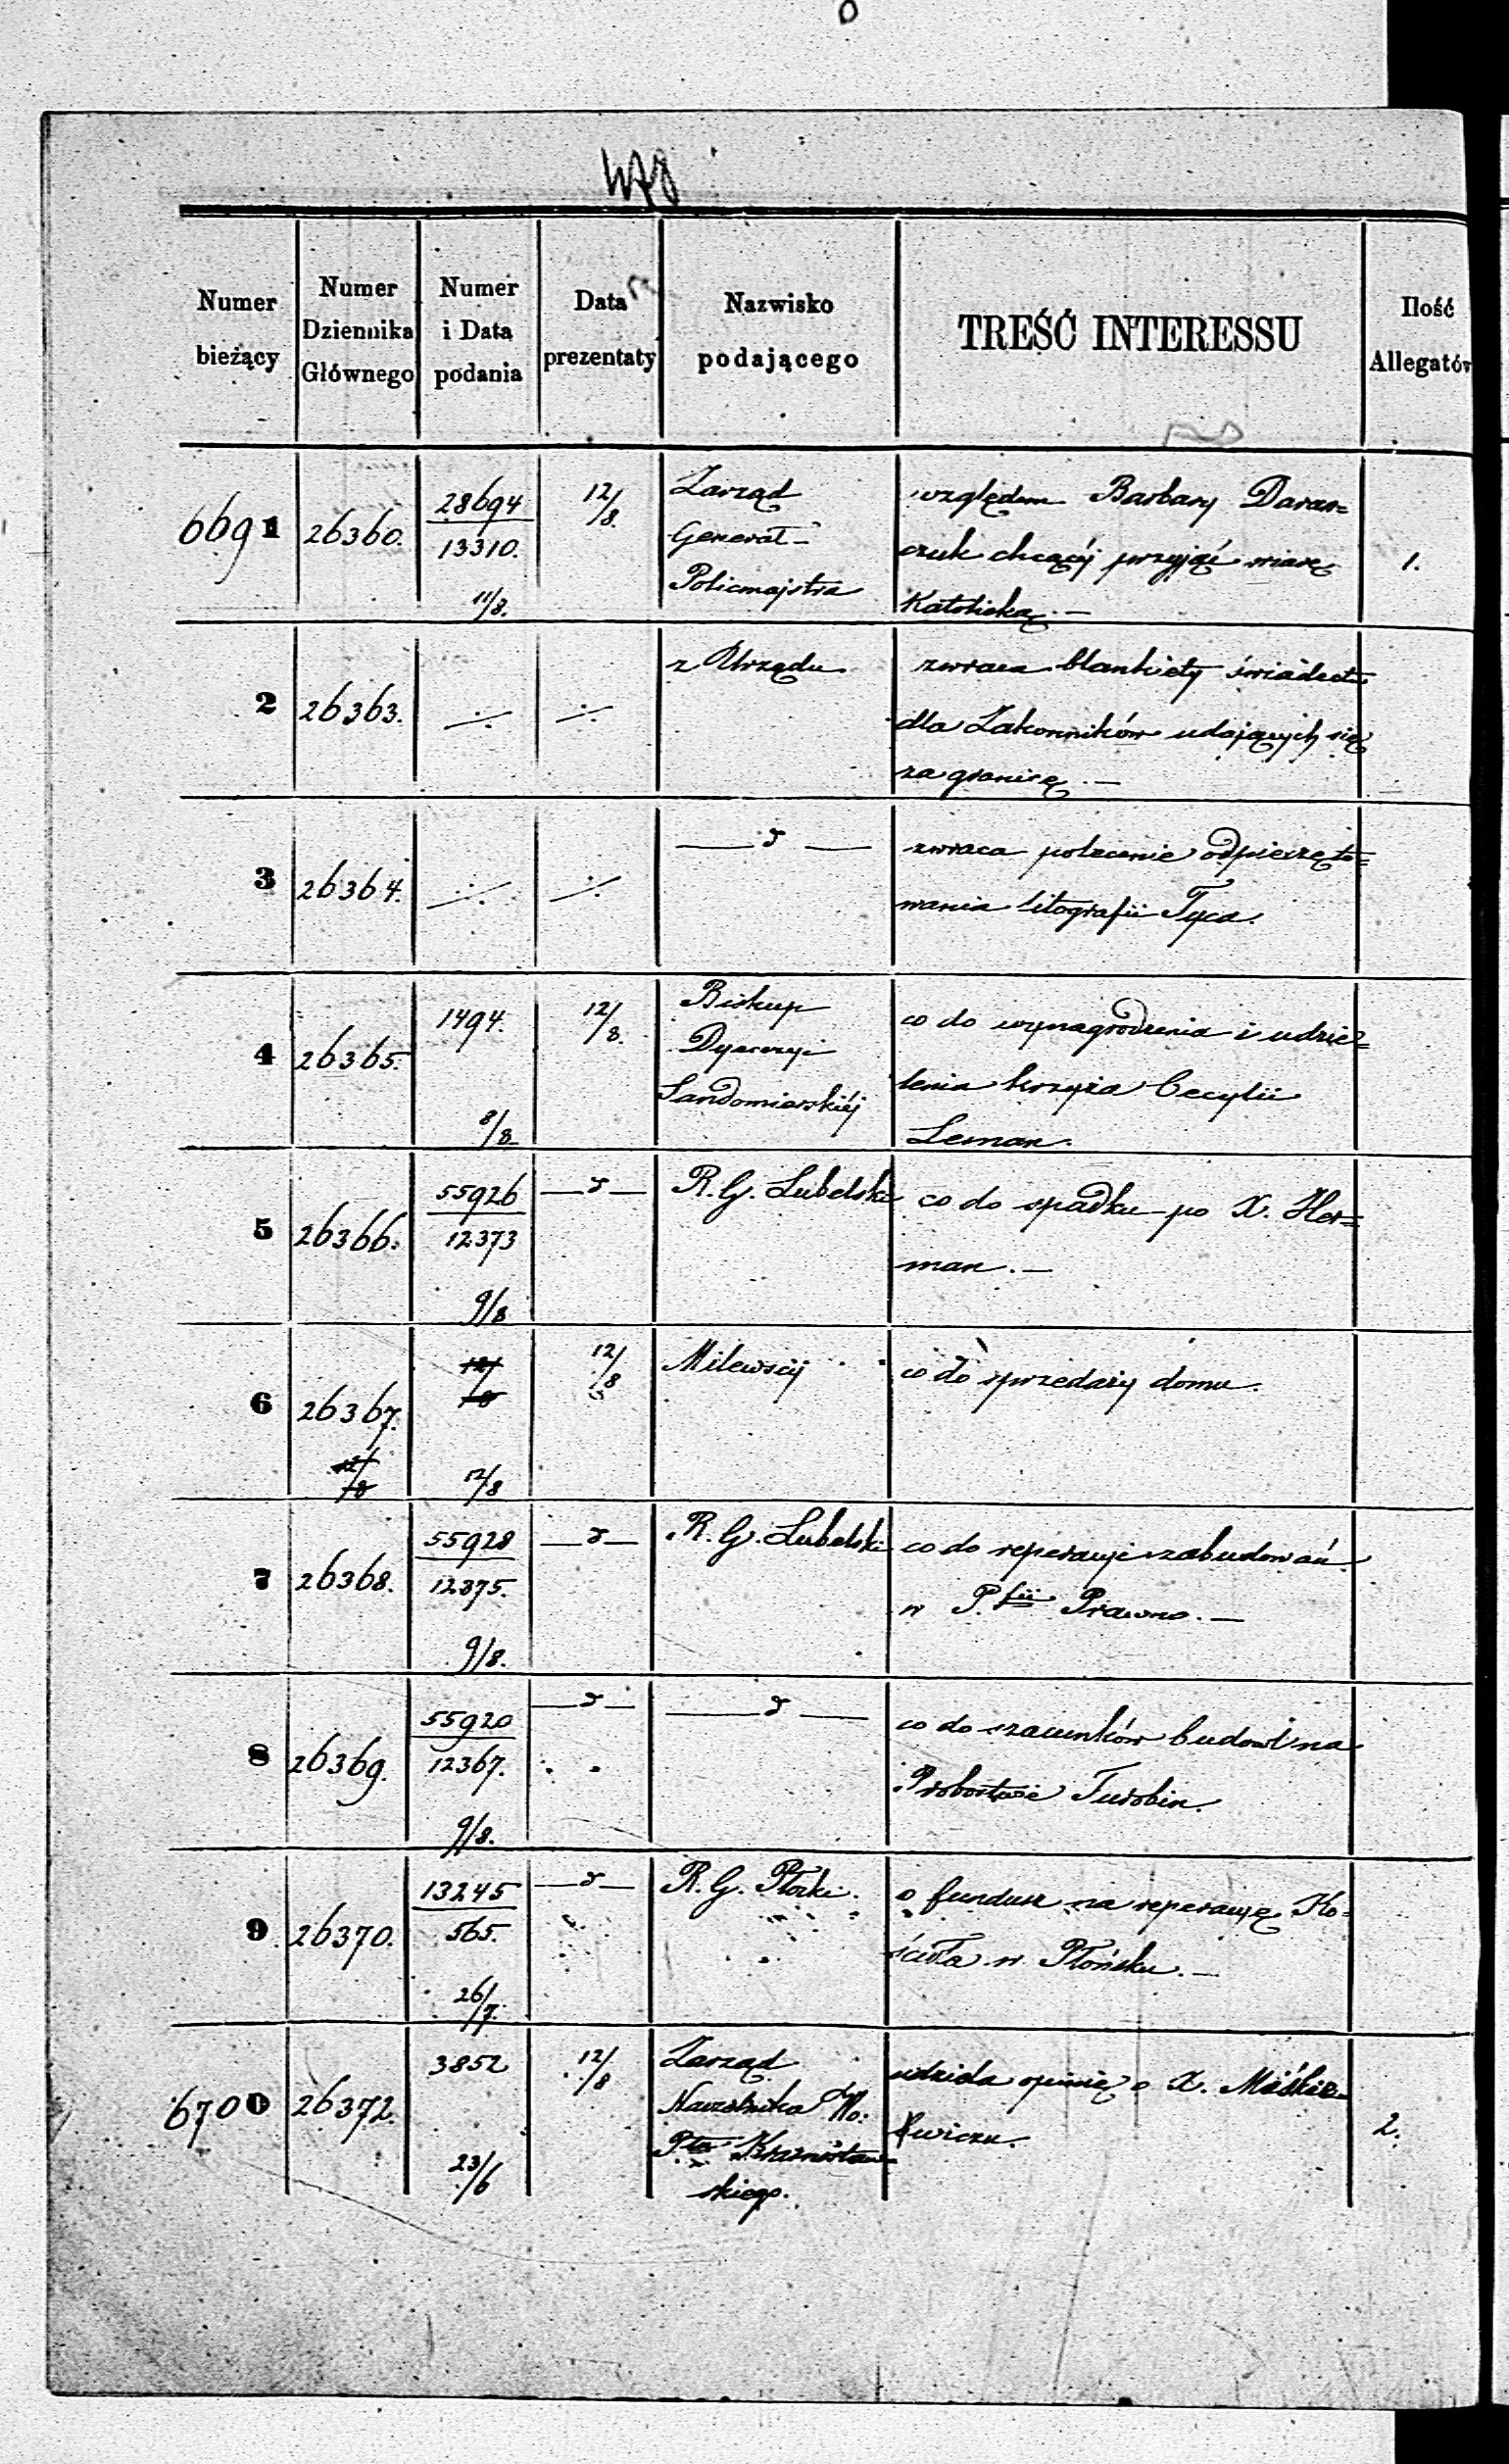 Numer bieżący
Numer Dziennika Głównego
Numer i Data podania
Data prezentaty
Nazwisko podającego
TREŚĆ INTERESSU
Ilość Allegatów
6691
26360.
28694
13310.
11/8.
12/8.
Zarząd
Generał-
Policmajstra
względem Barbary Daran=
czuk chcącéj przyjąć wiarę
Katolicką. —
1.
2
26363.
z Urzędu
zwraca blankiety świadectw
dla Zakonników udających się
za granicę. —
3
26364.
zwraca polecenie odpieczęto=
wania litografii Tyca.
4
26365.
1494.
8/8
12/8.
Biskup
Dyecezyi
Sandomierskiéj
co do wynagrodzenia i udzie=
lenia krzyża Cecylii
Leman.
5
26366.
55926
12373
9/8
R. G. Lubelski
co do spadku po X. Her=
man. —
6
26367.
12/8
12/8
Milewscy
co do sprzedaży domu.
7
26368.
55928
12375.
9/8.
R. G. Lubelski
co do reperacyi zabudowań
w P.fii Prawno. —
8
26369.
55920
12367.
9/8.
co do szacunków budowl na
Probostwie Turobin.
9
26370.
13245
565.
26/7.
R. G. Płocki.
o fundusz na reperacyę Ko=
ścioła w Płońsku. —
6700
26372.
3852
23/6
12/8
Zarząd
Naczelnika Wo:
Ptu Krasnostaw
skiego.
udziela opinię o X. Maśkie
wiczu.
2.